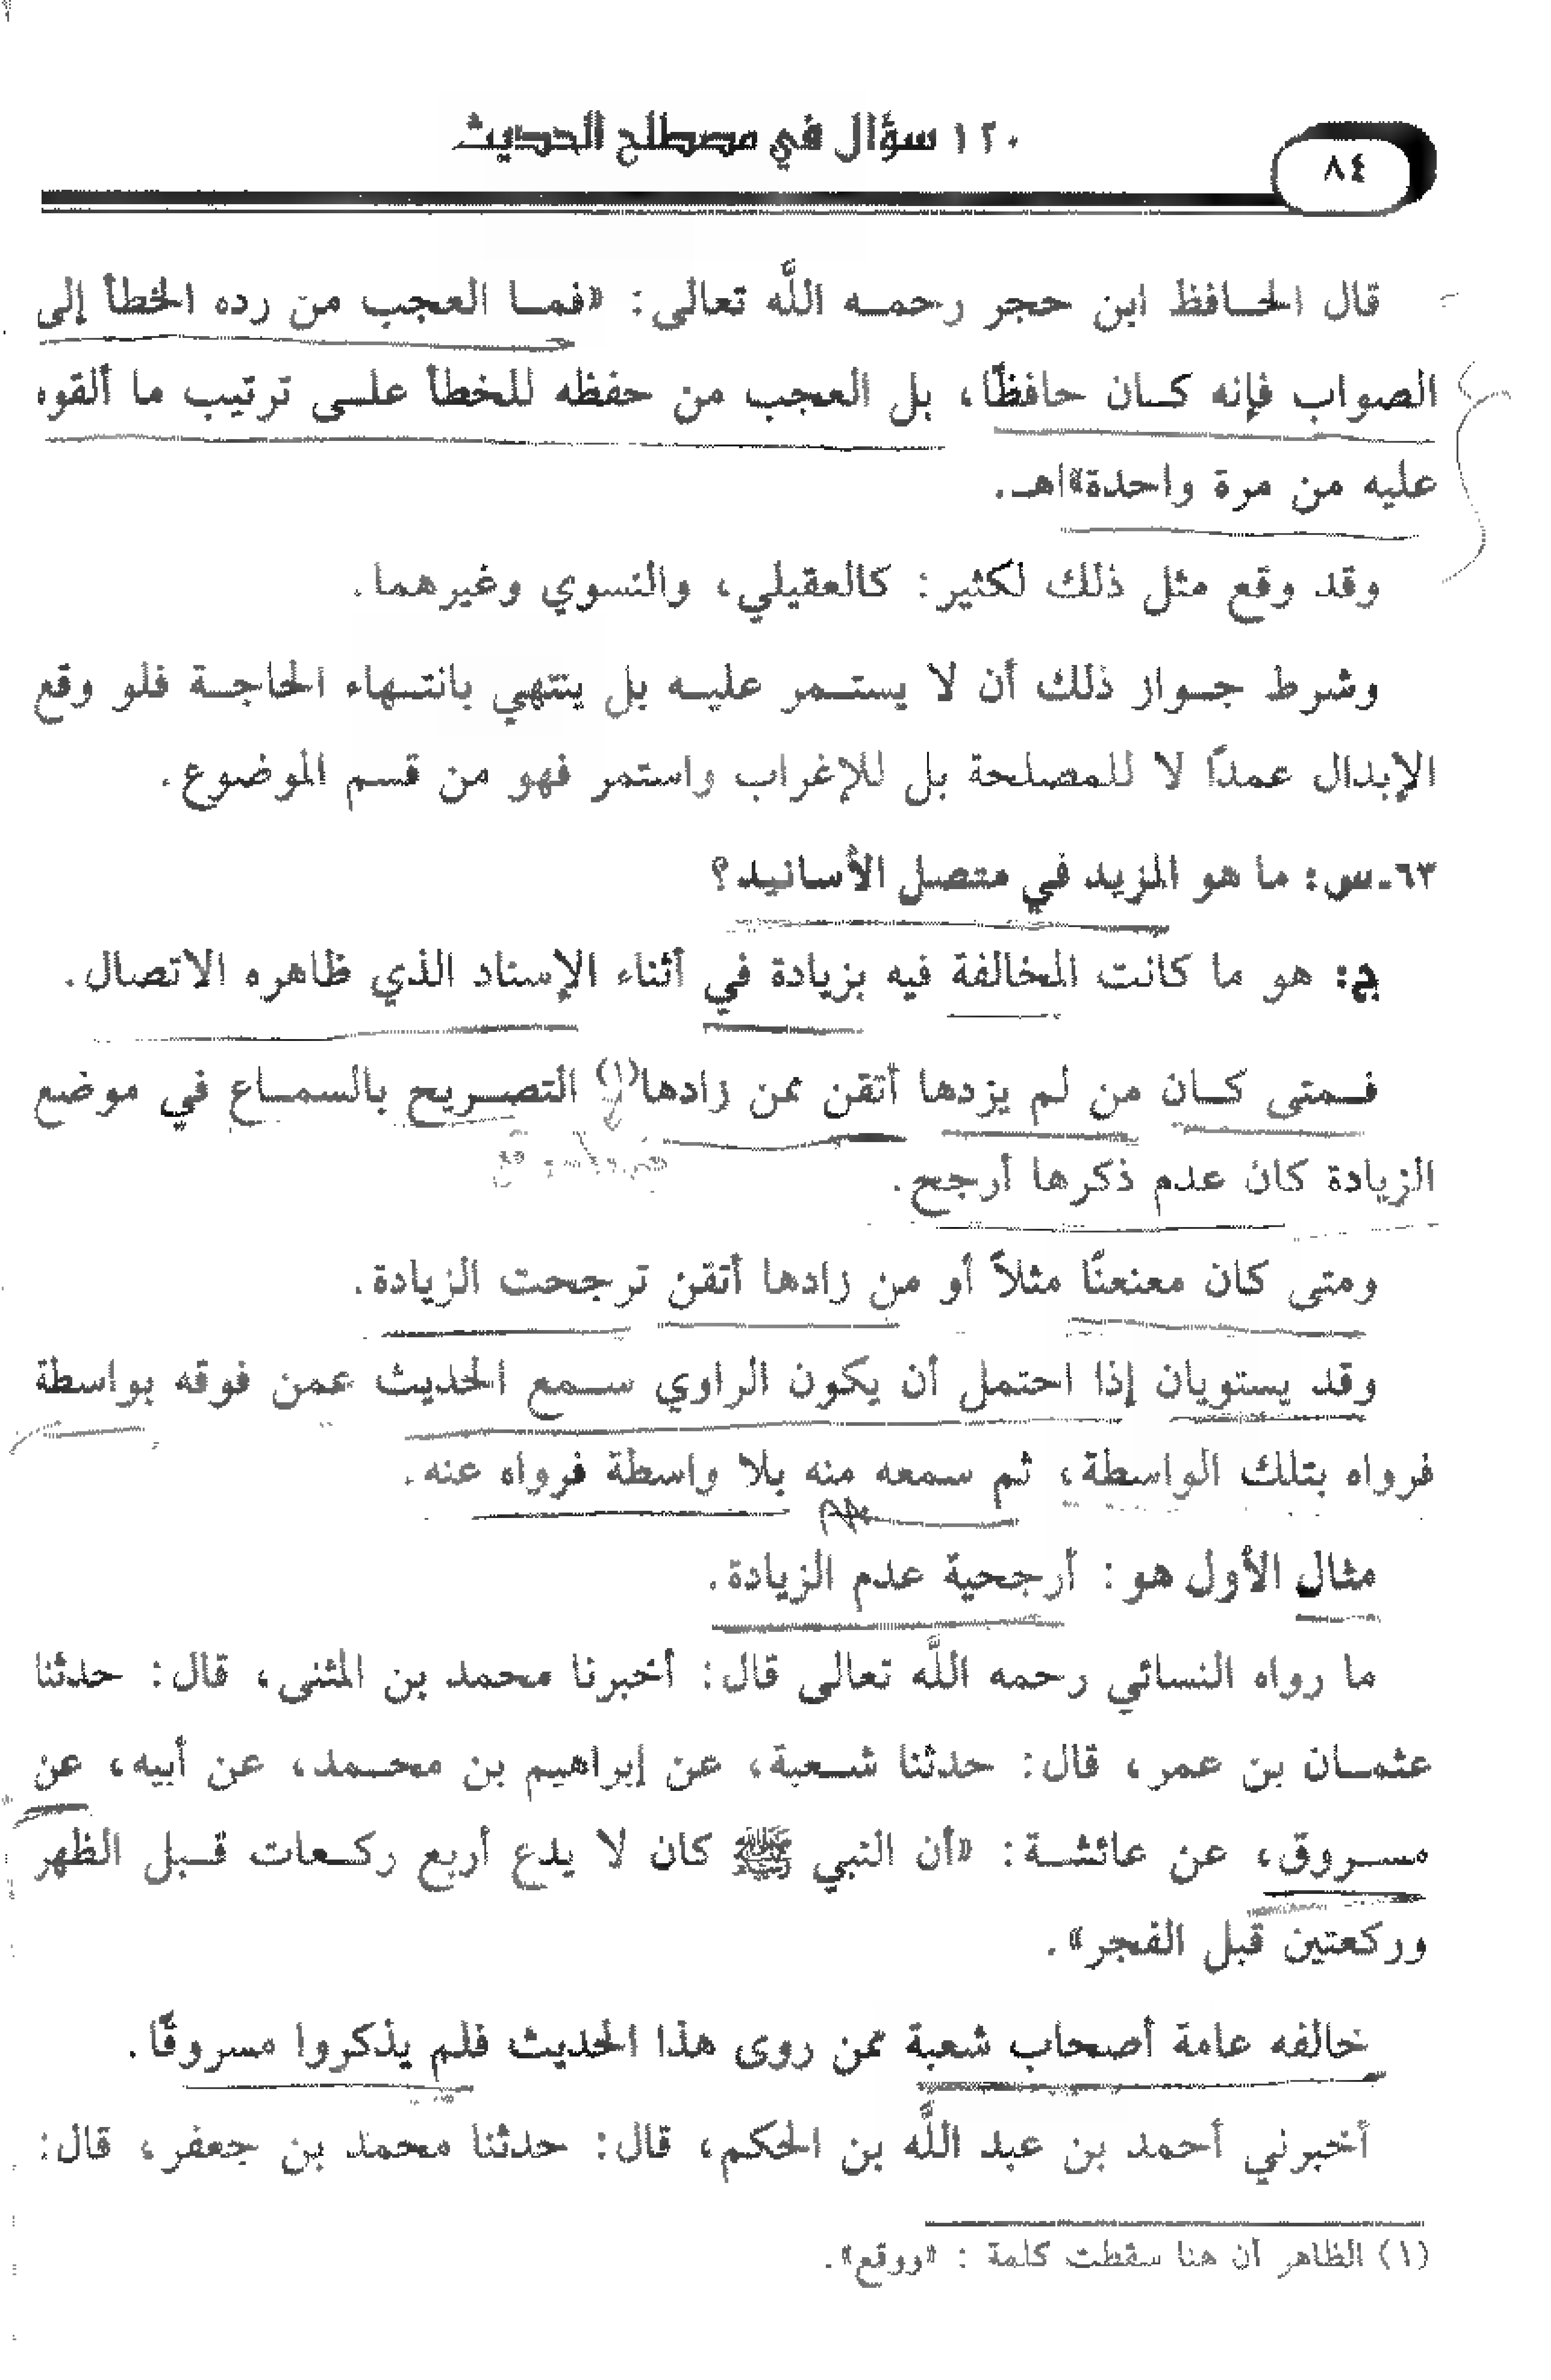 ١٢٠ سؤال في مصطلح الحديث
٨٤
قال الحافظ ابن حجر رحمه اللَّه تعالى: «فما العجب من رده الخطأ إلى
الصواب فإنه كان حافظًا، بل العجب من حفظه للخطأ على ترتيب ما ألقوه
عليه من مرة واحدة»اهـ.
وقد وقع مثل ذلك لكثير: كالعقيلي، والنسوي وغيرهما.
وشرط جواز ذلك أن لا يستمر عليه بل ينتهي بانتهاء الحاجة فلو وقع
الإبدال عمدًا لا للمصلحة بل للإغراب واستمر فهو من قسم الموضوع.
٦٣ـ س: ما هو المزيد في متصل الأسانيد؟
ج: هو ما كانت المخالفة فيه بزيادة في أثناء الإسناد الذي ظاهره الاتصال.
فمتى كان من لم يزدها أتقن ممن زادها(١) التصريح بالسماع في موضع
الزيادة كان عدم ذكرها أرجح.
ومتى كان معنعنًا مثلاً أو من زادها أتقن ترجحت الزيادة.
وقد يستويان إذا احتمل أن يكون الراوي سمع الحديث عمن فوقه بواسطة
فرواه بتلك الواسطة، ثم سمعه منه بلا واسطة فرواه عنه.
مثال الأول هو: أرجحية عدم الزيادة.
ما رواه النسائي رحمه اللَّه تعالى قال: أخبرنا محمد بن المثنى، قال: حدثنا
عثمان بن عمر، قال: حدثنا شعبة، عن إبراهيم بن محمد، عن أبيه، عن
مسروق، عن عائشة: «أن النبي ﷺ كان لا يدع أربع ركعات قبل الظهر
وركعتين قبل الفجر».
خالفه عامة أصحاب شعبة ممن روى هذا الحديث فلم يذكروا مسروقًا.
أخبرني أحمد بن عبد اللَّه بن الحكم، قال: حدثنا محمد بن جعفر، قال:
(١) الظاهر أن هنا سقطت كلمة : «ووقع».